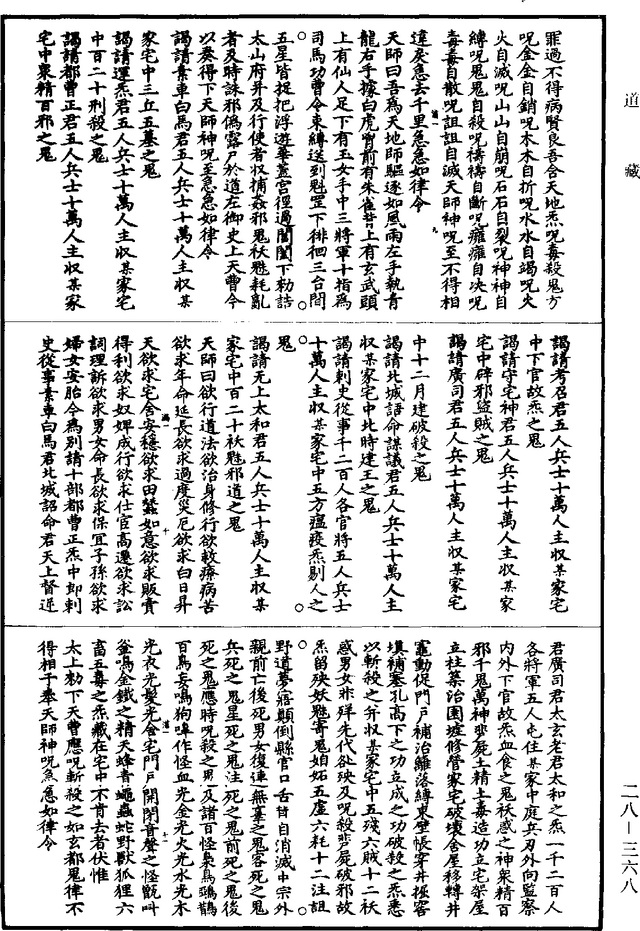 道藏
罪過不得病賢良吾含天地炁呪毒殺鬼方
呪金金自銷呪木木自折呪水水自竭呪火
火自滅呪山山自崩呪石石自裂呪神神自
縛呪鬼鬼自殺呪禱禱自斷呪癰癰自決呪
毒毒自散呪詛詛自滅天師神呪至不得相
違戾急去千里急急如律令
天師曰吾為天地師驅逐如風雨左手執青
龍右手據白虎胷前有朱雀背上有玄武頭
上有仙人足下有玉女手中三將軍十指為
司馬功曹令束縛送到魁罡下徘徊三台間
五星皆捉把浮遊華蓋宮徑過閶闔下勑詰
太山府并及行使者収捕姦邪鬼袄魅耗亂
者及時誅邪偽露尸於道左御史上天曹今
以奏得下天師神呪至急急如律令
謁請素車白馬君五人兵士十萬人主収某
家宅中三丘五墓之鬼
謁請運炁君五人兵士十萬人主収某家宅
中百二十刑殺之鬼
謁請都曹正君五人兵士十萬人主収某家
宅中衆精百邪之鬼
謁請考召君五人兵士十萬人主収某家宅
中下官故炁之鬼
謁請守宅神君五人兵士十萬人主収某家
宅中碑邪盜賊之鬼
謁請廣司君五人兵士十萬人主収某家宅
中十二月建破殺之鬼
謁請北城語命謀議君五人兵士十萬人主
収某家宅中北時建王之鬼
謁請刺史從事千二百人各官將五人兵士
十萬人主収某家宅中五方瘟疫炁剔人之
鬼
謁請无上太和君五人兵士十萬人主収某
家宅中百二十袄魅邪道之鬼
天師曰欲行道法欲治身修行欲救療病苦
欲求年命延長欲求過度災厄欲求白日昇
天欲求宅舍安穩欲求田蠶如意欲求販賣
得利欲求奴婢成行欲求仕官高遷欲求訟
詞理訴欲求男女命長欲求保宜子孫欲求
婦女安胎今為別請十部都曹正炁中郎刺
史從事素車白馬君北城詔命君天上督逆
君廣司君太玄老君太和之炁一千二百人
各將軍五人屯住某家中庭兵刃外向監察
內外下官故炁血食之鬼袄惑之神衆精百
邪千鬼萬神悲屍土精土毒造功立宅架屋
立柱築治園墟修營家宅破壞舍屋移轉井
竈動促門戶補治籬落縛束壁帳穿井掘窖
填補塞孔高下之功立成之功破殺之炁悉
以斬殺之并収某家宅中五殘六賊十二袄
惑男女非殃先代欲殃及呪殺悲屍破邪故
炁留殃妖魅寄鬼妲妬五虛六耗十二注詛
野道夢寤顛倒縣官口舌皆自消滅中宗外
親前亡後死男女復連無辜之鬼客死之鬼
兵死之鬼星死之鬼注死之鬼前死之鬼後
死之鬼應時呪殺之男女及諸百怪梟鳥鵶鵲
百鳥妄鳴狗嘷作怪血光金光火光水光木
光衣光髮光舍宅門戶開閉音聲之怪甑叫
釜鳴金鐵之精天蜂青蠅蟲蛇野獸狐狸六
畜五毒之炁藏在宅中不肯去者伏惟
太上勑下天曹應呪斬殺之如玄都鬼律不
得相干奉天師神呪急急如律令
二八—三六八